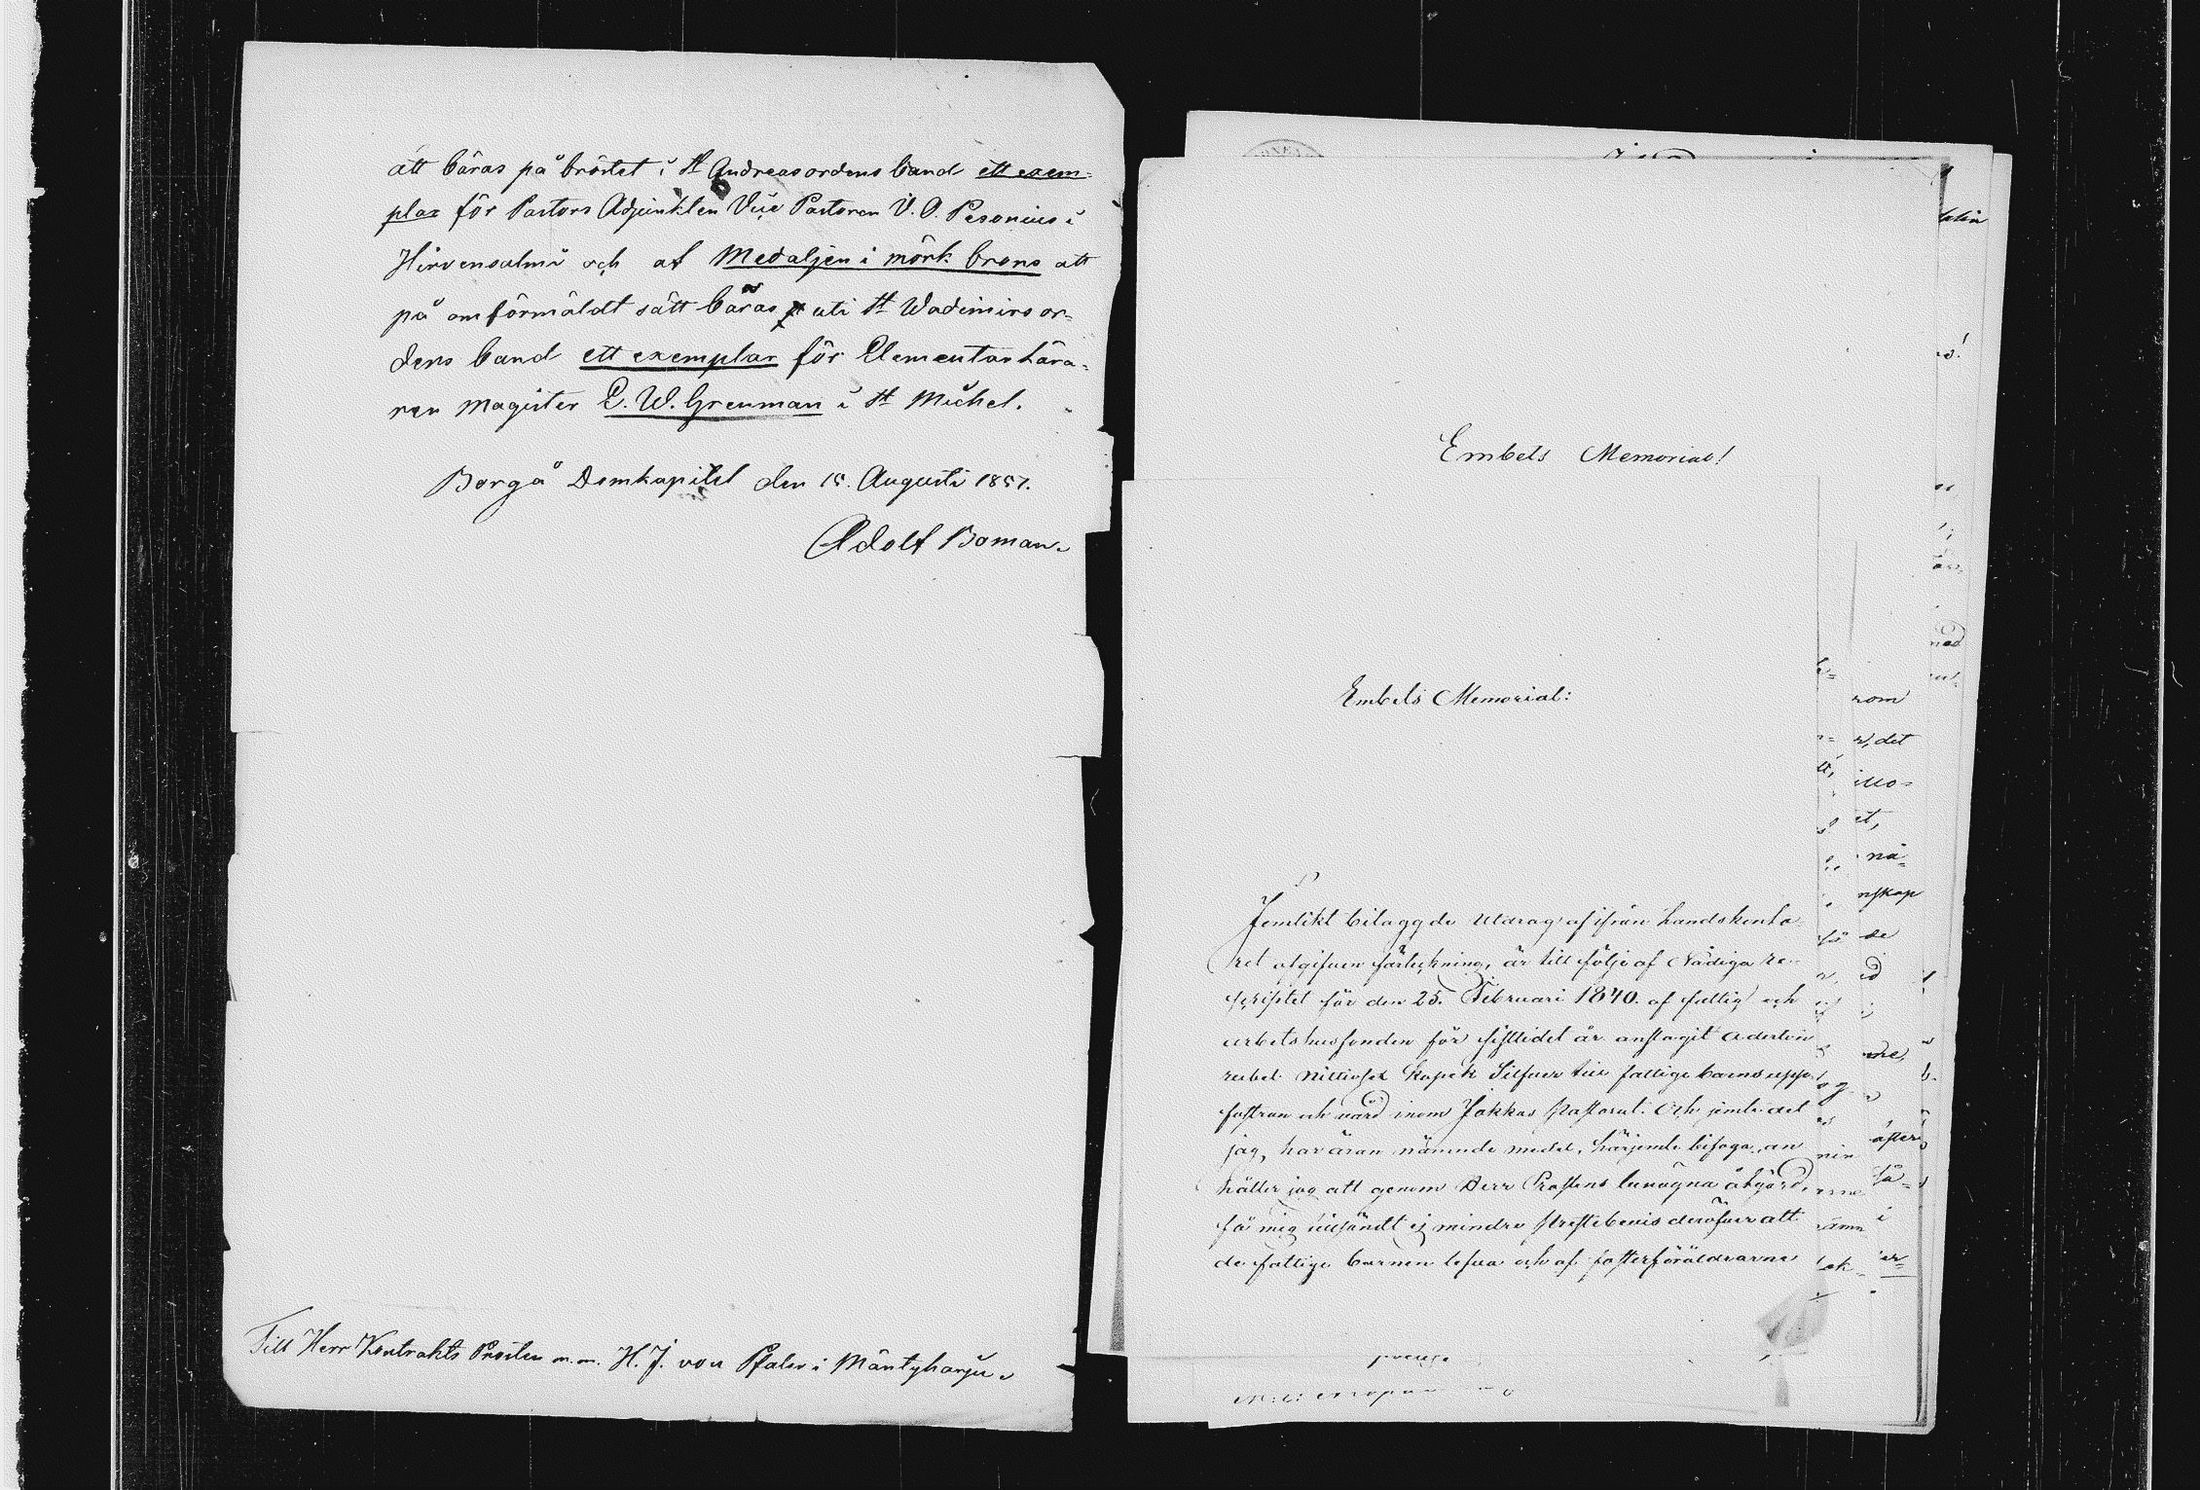 att bäras på bröstet i St Andreasordens band ett exem-
plar för Pastors Adjunkten Vice Pastoren V. O. Pesonius i
Hirvensalmi och af Medaljen i mörk brons att
på omförmäldt sätt bäras uti St Wadimirs or-
dens band ett exemplar för Elementarlära-
ren Magister E. W. Grenman i St Michel.
Borgå Domkapitel den 15. Augusti 1857.
Adolf Boman.
Till Herr Kontrakts Prosten m.m. H. J. von Pfaler i Mäntyharju.
Embets Memorial!
Embets Memorial:
Jemlikt bilaggde utdrag af ifrån Landskonto-
ret utgifven förteckning, är till följe af Nådiga re-
scriptet för den 25. Februari 1840. af fattig och
arbetshusfonden för sistlidet år anslagit Aderton
rubel Nittiofel kopek Silfver till fattige barns upp-
fostran och vård inom Jokkas Pastorat. Och jemte det
jag, har äran nämnde medel, härjemte bifoga, an
håller jag att genom Herr Prostens benägna åtgärd,
få mig tillsändt ej mindre Prestebevis deröfver att
de fattige barnen lefva och af fosterföräldrarne
rom
r, det
et,
nå-
nskap
de
så-
i